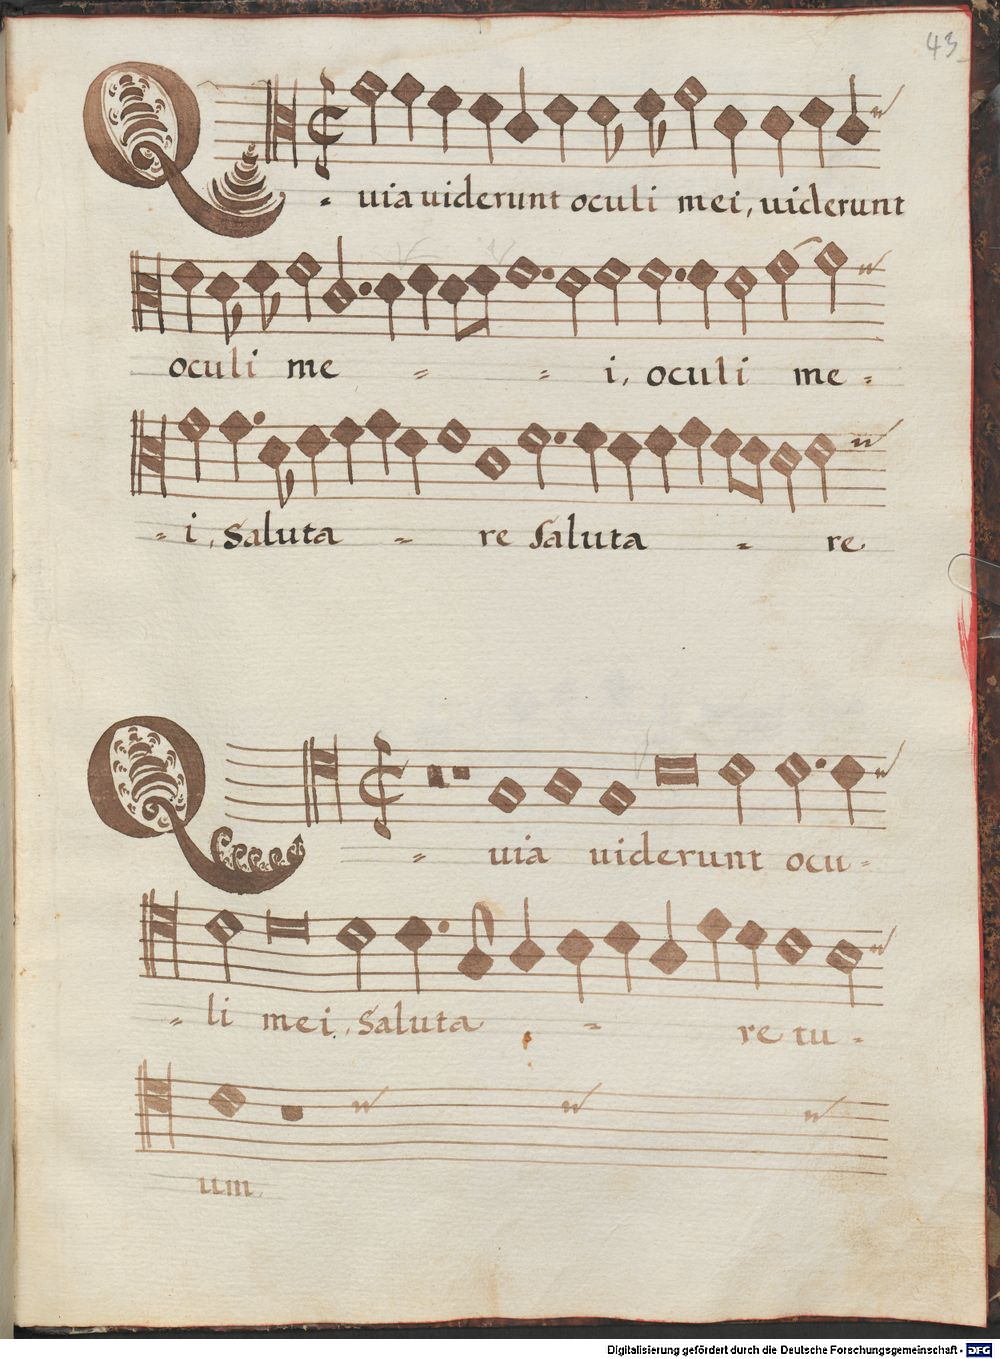 43
Quia uiderunt oculi mei, uiderunt
oculi me - - i, oculi me -
- i, saluta - re saluta - re
Quia uiderunt ocu -
li mei, saluta - re tu -
um
Digitalisierung gefördert durch die Deutsche Forschungsgemeinschaft - DFG